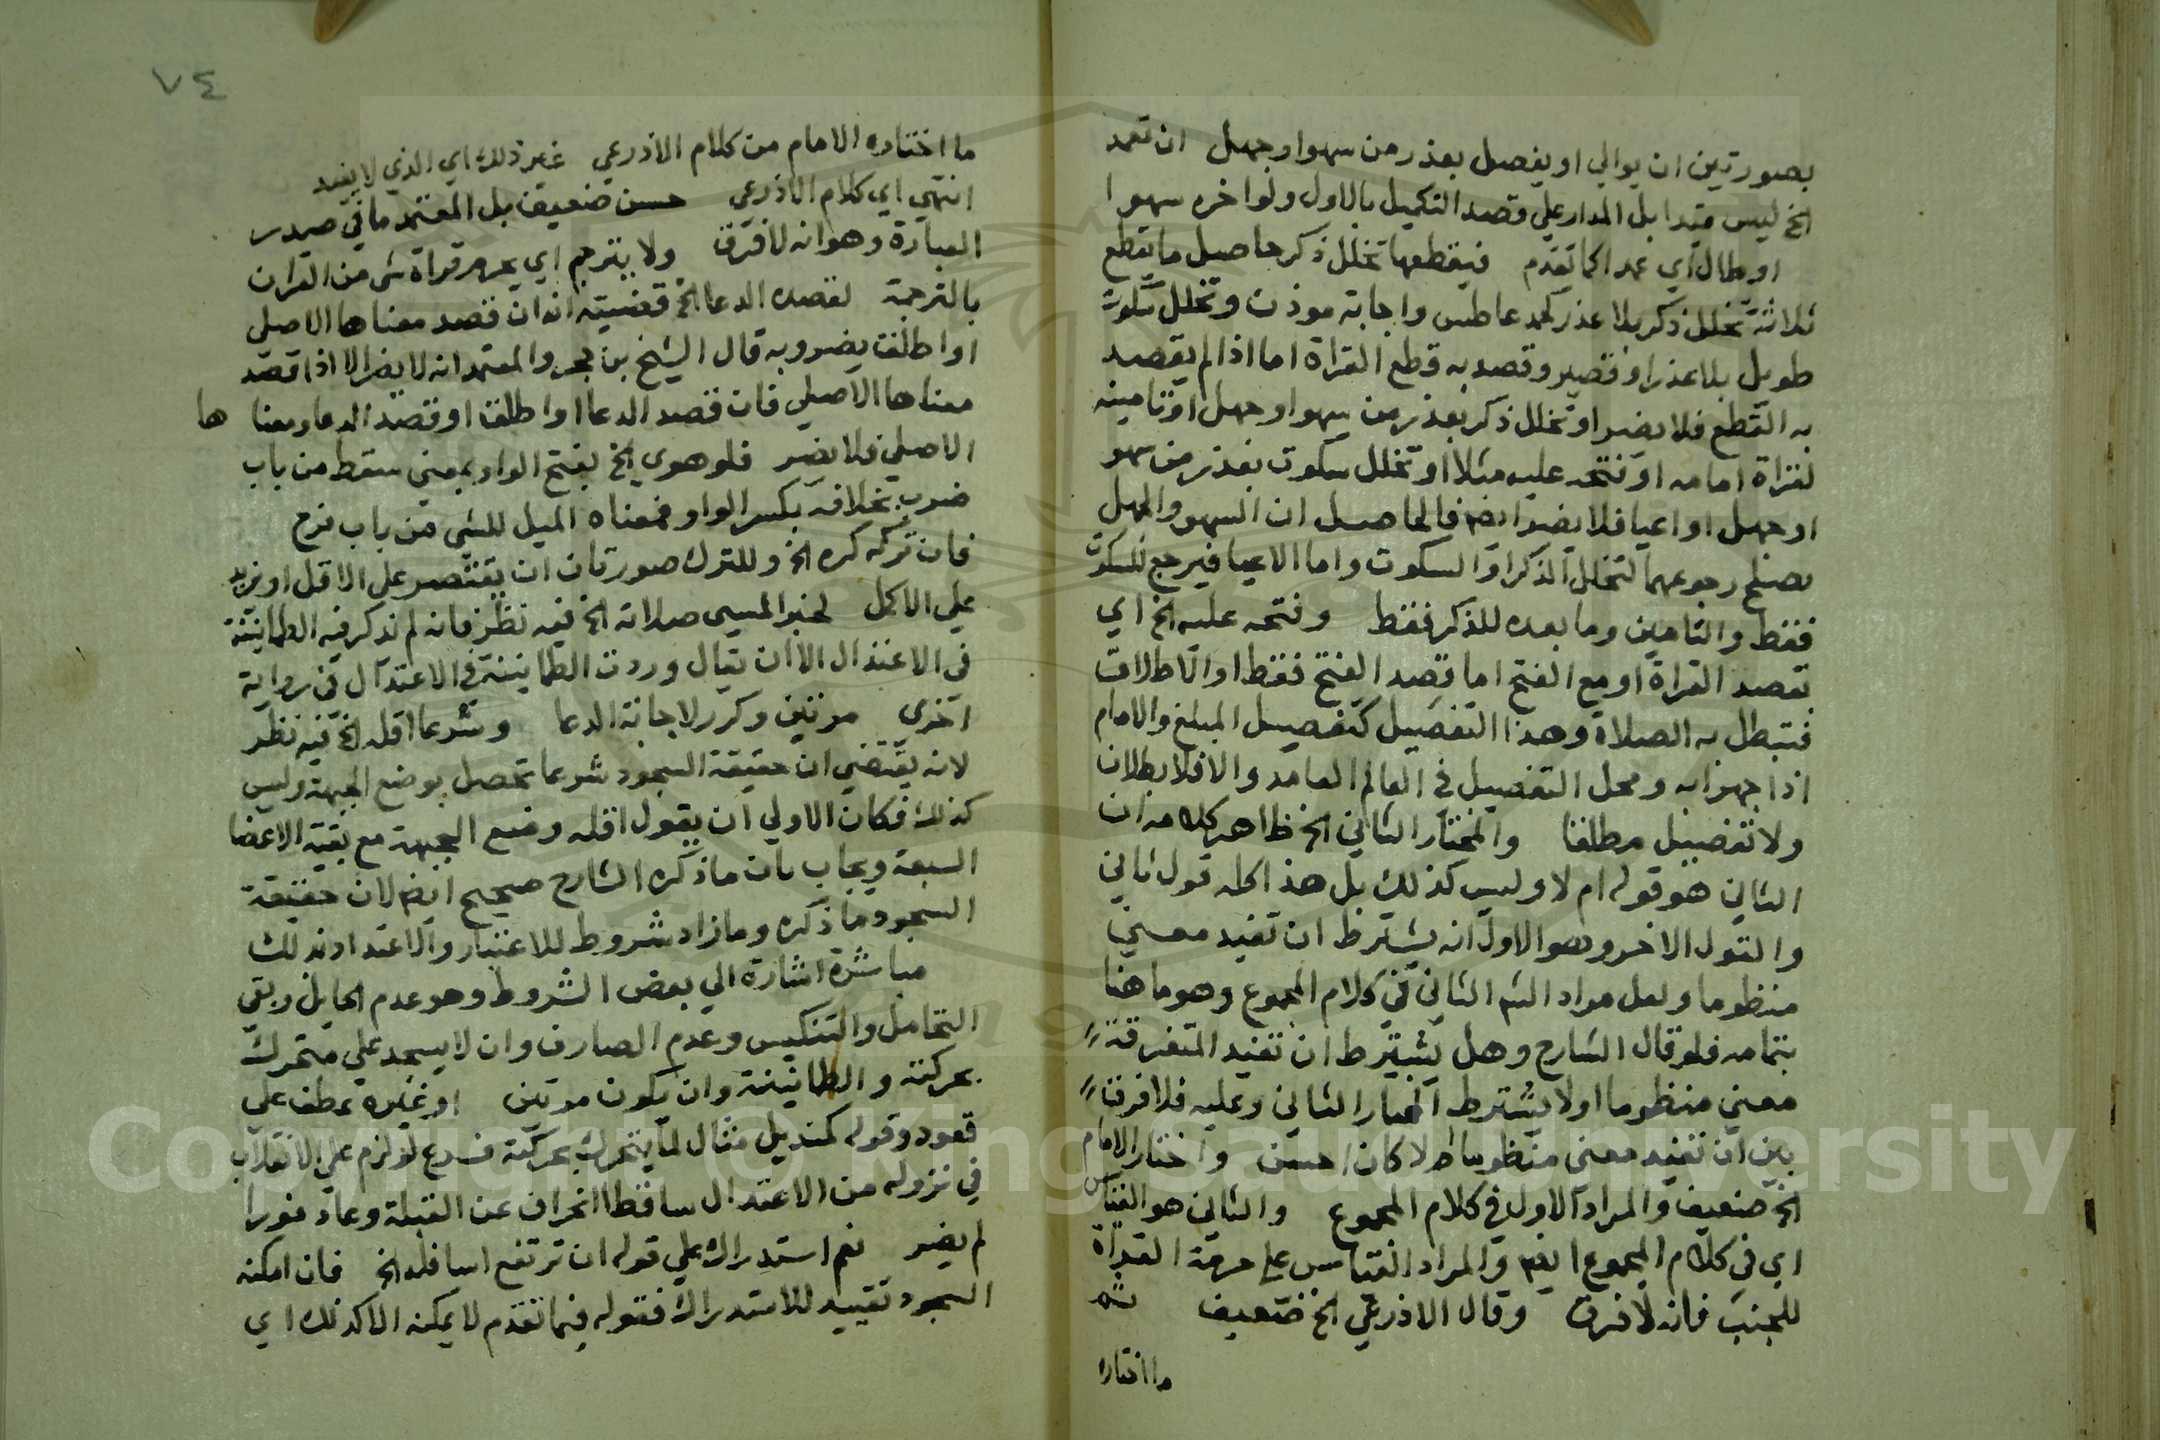 بصورتين ان يوالي او يفصل بعذر من سهو او جهل ان تعمد
الخ ليس قيدا بل المدار علي قصد التكميل بالاول ولو اخره سهوا
او طال اي عمدا كما تقدم فيقطعها تخلل ذكر حاصل ما يقطع
ثلاثة تخلل ذكر بلا عذر كحمد عاطس واجابة موذن وتخلل سكوت
طويل بلا عذر او قصير وقصد به قطع القراة اما اذا لم يقصد
به القطع فلا يضر او تخلل ذكر بعذر من سهو او جهل او تامينه
لقراة امامه او فتحه عليه مثلا او تخلل سكوت بعذر من سهو
او جهل او اعيا فلا يضر ايضا فالحاصل ان السهو والجهل
يصلح رجوعهما لتخلل الذكر او السكوت واما الاعيا فيرجع للسكوت
فقط والتامين وما بعده للذكر فقط وفتحه عليه الخ اي
بقصد القراة او مع الفتح اما قصد الفتح فقط او الاطلاق
فتبطل به الصلاة وهذا التفصيل كتفصيل المبلغ والامام
اذا جهرا به ومحل التفصيل في العالم العامد والا فلا بطلان
ولا تفصيل مطلقا والمختار الثاني الخ ظاهر كلامه ان
الثاني هو قوله ام لا وليس كذلك بل هذا كله قول ثاني
والقول الاخر وهو الاول انه يشترط ان تفيد معني
منظوما ولعل مراد الشم الثاني في كلام المجموع وهو ما هنا
بتمامه فلو قال الشارح وهل يشترط ان تفيد المتفرقة
معني منظوما او لا يشترط المختار الثاني وعليه فلا فرق
بين ان تفيد معني منظوما ام لا كان احسن واختار الامام
الخ ضعيف والمراد الاول في كلام المجموع والثاني هو القياس
اي في كلام المجموع ايضا والمراد القياس علي حرمة القراة
للجنب فانه لا فرق وقال الاذرعي الخ ضعيف ثم
ما اختاره
٧٤
ما اختاره الامام من كلام الاذرعي غير ذلك اي الذي لا يفيد
انتهي اي كلام الاذرعي حسن ضعيف بل المعتمد ما في صدر
العبارة وهو انه لا فرق ولا يترجم اي يحرم قراة شي من القران
بالترجمة لقصده الدعا الخ قضيته انه ان قصد معناها الاصلي
او اطلق يضر وبه قال الشيخ بن حجر والمعتمد انه لا يضر الا اذا قصد
معناها الاصلي فان قصد الدعا او اطلق او قصد الدعا ومعنا ها
الاصلي فلا يضر فلو هوي الخ بفتح الواو بمعني سقط من باب
ضرب بخلافه بكسر الواو فمعناه الميل للشي من باب فرح
فان تركه كره الخ وللترك صورتان ان يقتصر علي الاقل او يزيد
علي الاكمل لخبر المسي صلاته الخ فيه نظر فانه لم تذكر فيه الطمانينة
في الاعتدال الا ان يقال وردت الطمانينة في الاعتدال في رواية
اخري مرتين وكرر لاجابة الدعا وشرعا اقله الخ فيه نظر
لانه يقتضي ان حقيقة السجود شرعا تحصل بوضع الجبهة وليس
كذلك فكان الاولي ان يقول اقله وضع الجبهة مع بقية الاعضا
السبعة ويجاب بان ما ذكره الشارح صحيح ايضا لان حقيقة
السجود ما ذكره وما زاد شروط للاعتبار والاعتداد بذلك
مباشرة اشارة الي بعض الشروط وهو عدم الحايل وبقي
التحامل والتنكيس وعدم الصارف وان لا يسجد علي متحرك
بحركته والطمانينة وان يكون مرتين او غيره عطف علي
قعود وقوله كمنديل مثال لما يتحرك بحركته فسرع لو لزم علي الانقلاب
في نزوله من الاعتدال ساقطا انحراف عن القبلة وعاد فورا
لم يضر نعم استدراك علي قوله ان ترتفع اسافله الخ فان امكنه
السجود تقييد للاستدراك فقوله فيما تقدم لا يمكنه الا كذلك اي
Copyright © King Saud University